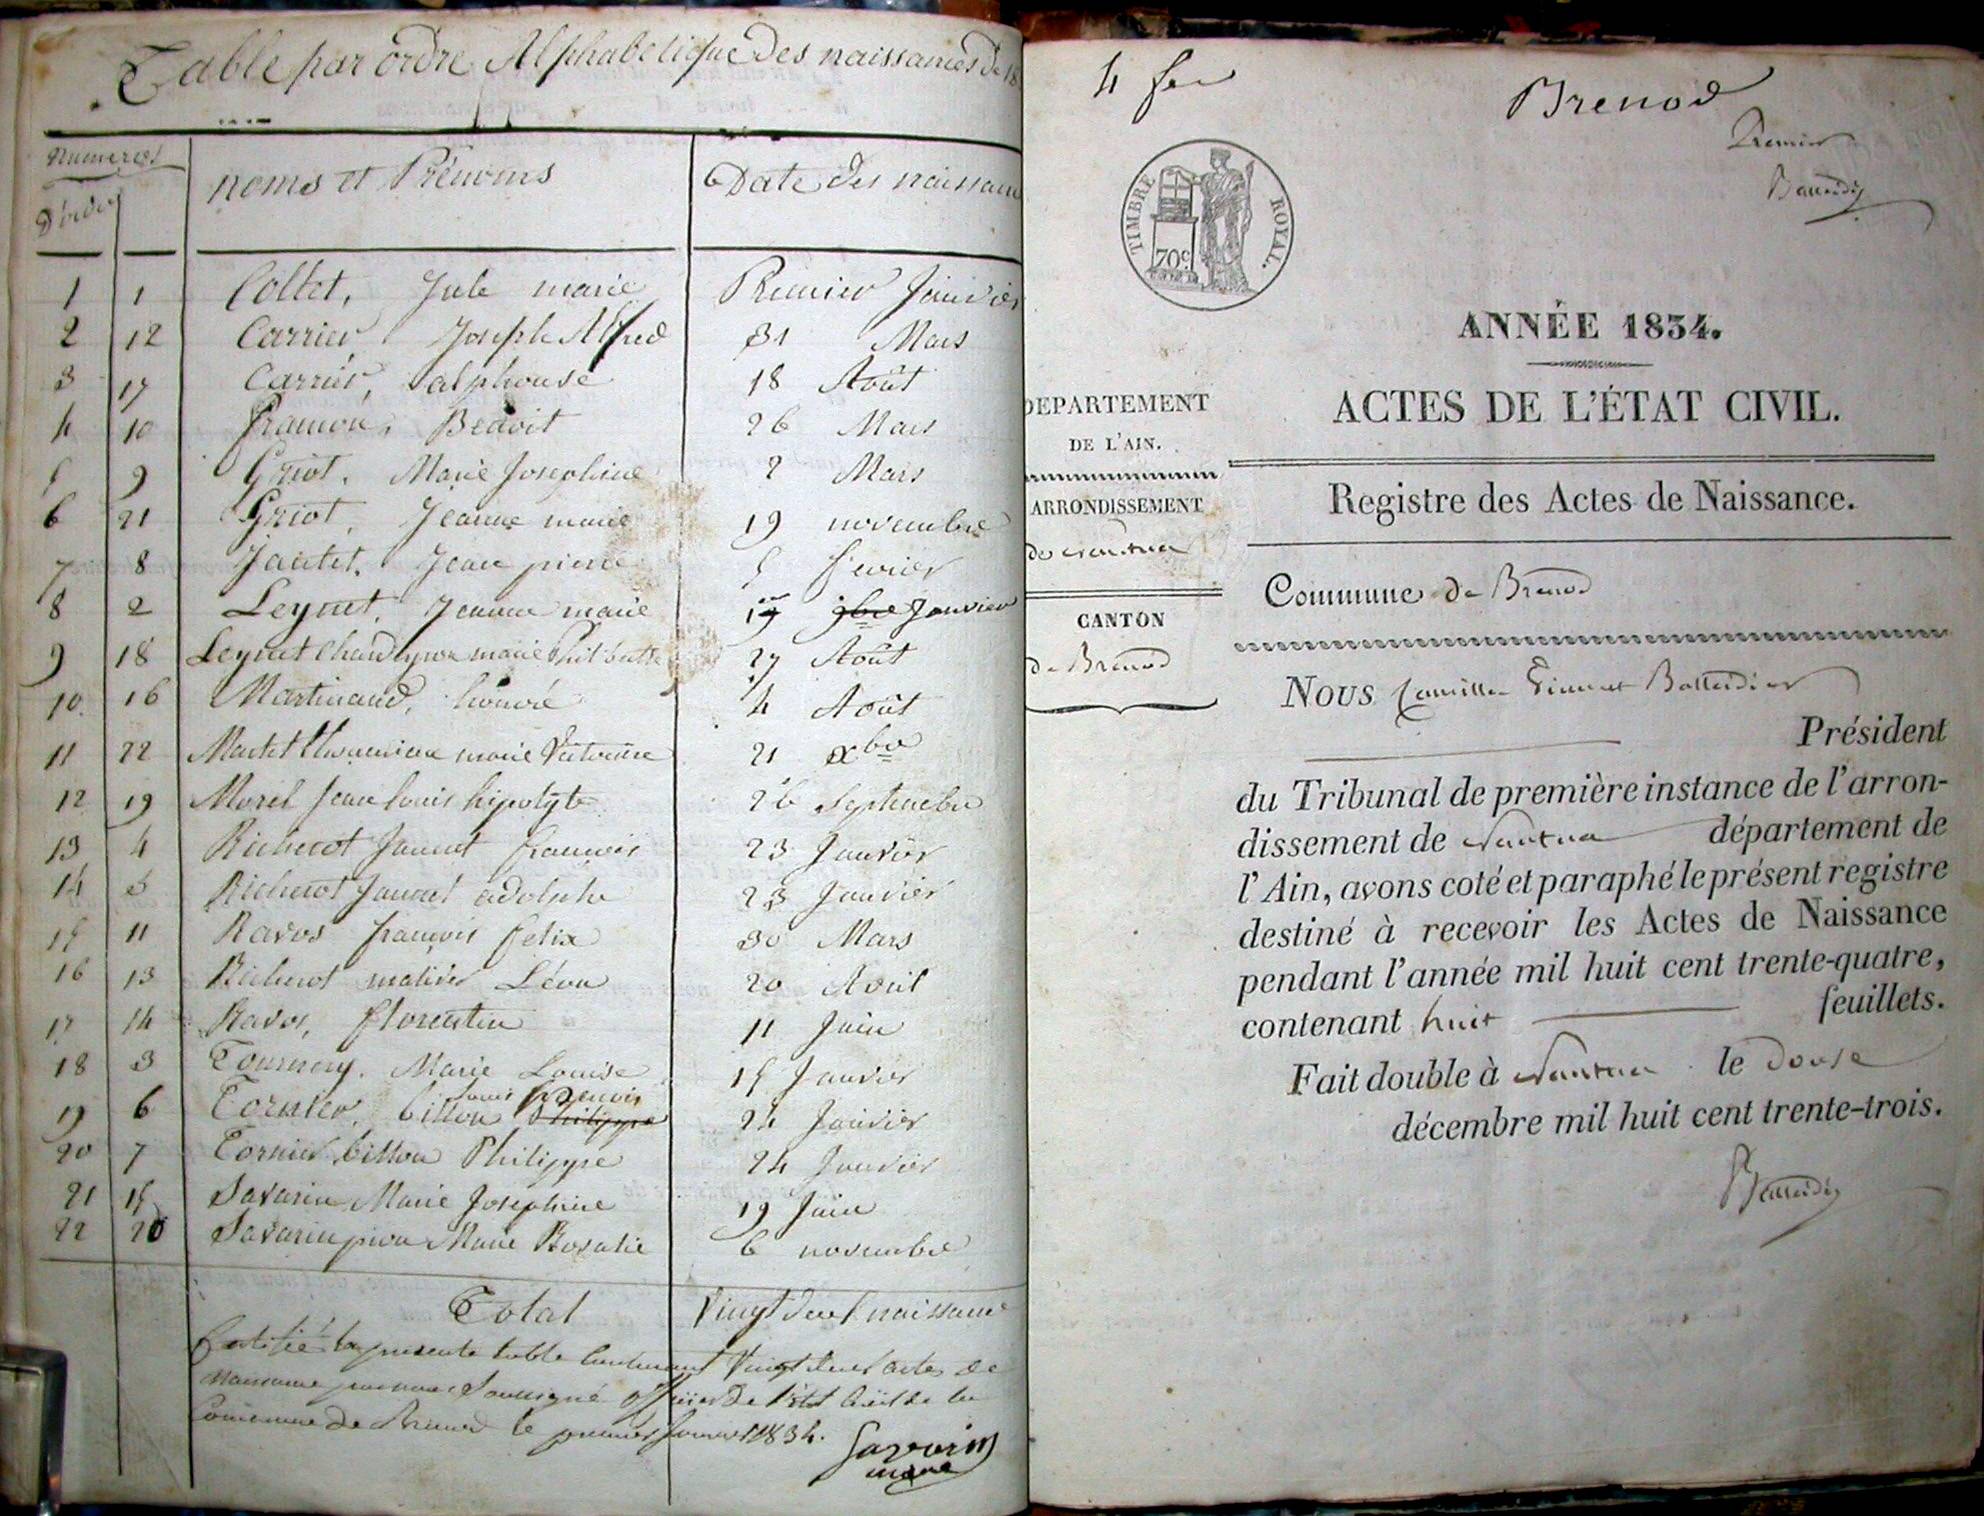 Table par ordre Alphabetique Des naissances De 18
numeros
D'ordre
noms et Prénoms
Date des naissan
1 1 Collet, Jule marie Premier Janvier
2 12 Carrier Joseph Alfred 31 Mars
3 17 Carrier, alphonse 18 Août
4 10 Framon, Benoit 26 Mars
5 9 Griot, Marie Josephine 2 Mars
6 21 Griot, Jeanne marie 19 novembre
7 8 Jantet, Jean pierre 5 fevrier
8 2 Leynet, Jeanne marie 19 9bre Janvier
9 18 Leynet marie 27 Août
10 16 Martinand, honoré 4 Août
11 22 Martet marie Victorine 21 xbre
12 19 Morel Jean louis hipolyte 26 Septembre
13 4 Richerot Jannet françois 23 Janvier
14 5 Richerot Jannet adolphe 23 Janvier
15 11 Ravos françois felix 30 Mars
16 13 Richerot Léon 20 Avril
17 14 Ravos, florentin 11 Juin
18 3 Tournery, Marie Louise 15 Janvier
Louis françois
19 6 Tornier, bitton Philippe 24 Janvier
20 7 Tornier bitton Philippe 24 Janvier
21 15 Savarin Marie Josephine 19 Juin
22 20 Savarin pion Marie Rosalie 6 novembre
Total Vingt deux naissance
Certifié la presente table contenant Vingt deux actes de
naissance par nous Soussigné officier de l'état Civil de la
Commune de Brenod le premier Janvier 1834.
Savarin
maire
4 fer
Brenod
Premier
TIMBRE ROYAL.
70c
ANNÉE 1834.
ACTES DE L'ÉTAT CIVIL.
DEPARTEMENT
DE L'AIN.
ARRONDISSEMENT
de Nantua
CANTON
de Brenod
Registre des Actes de Naissance.
Commune de Brenod
Nous Camille
Président
du Tribunal de première instance de l'arron-
dissement de Nantua département de
l'Ain, avons coté et paraphé le présent registre
destiné à recevoir les Actes de Naissance
pendant l'année mil huit cent trente-quatre,
contenant huit feuillets.
Fait double à Nantua le douse
décembre mil huit cent trente-trois.